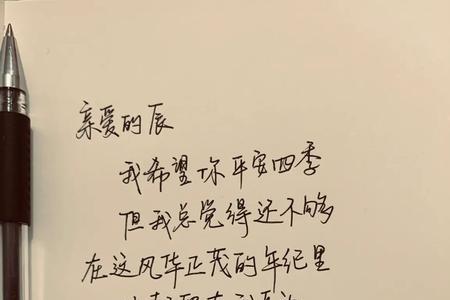 亲爱的辰
我希望你平安四季
但我总觉得还不够
在这风华正茂的年纪里